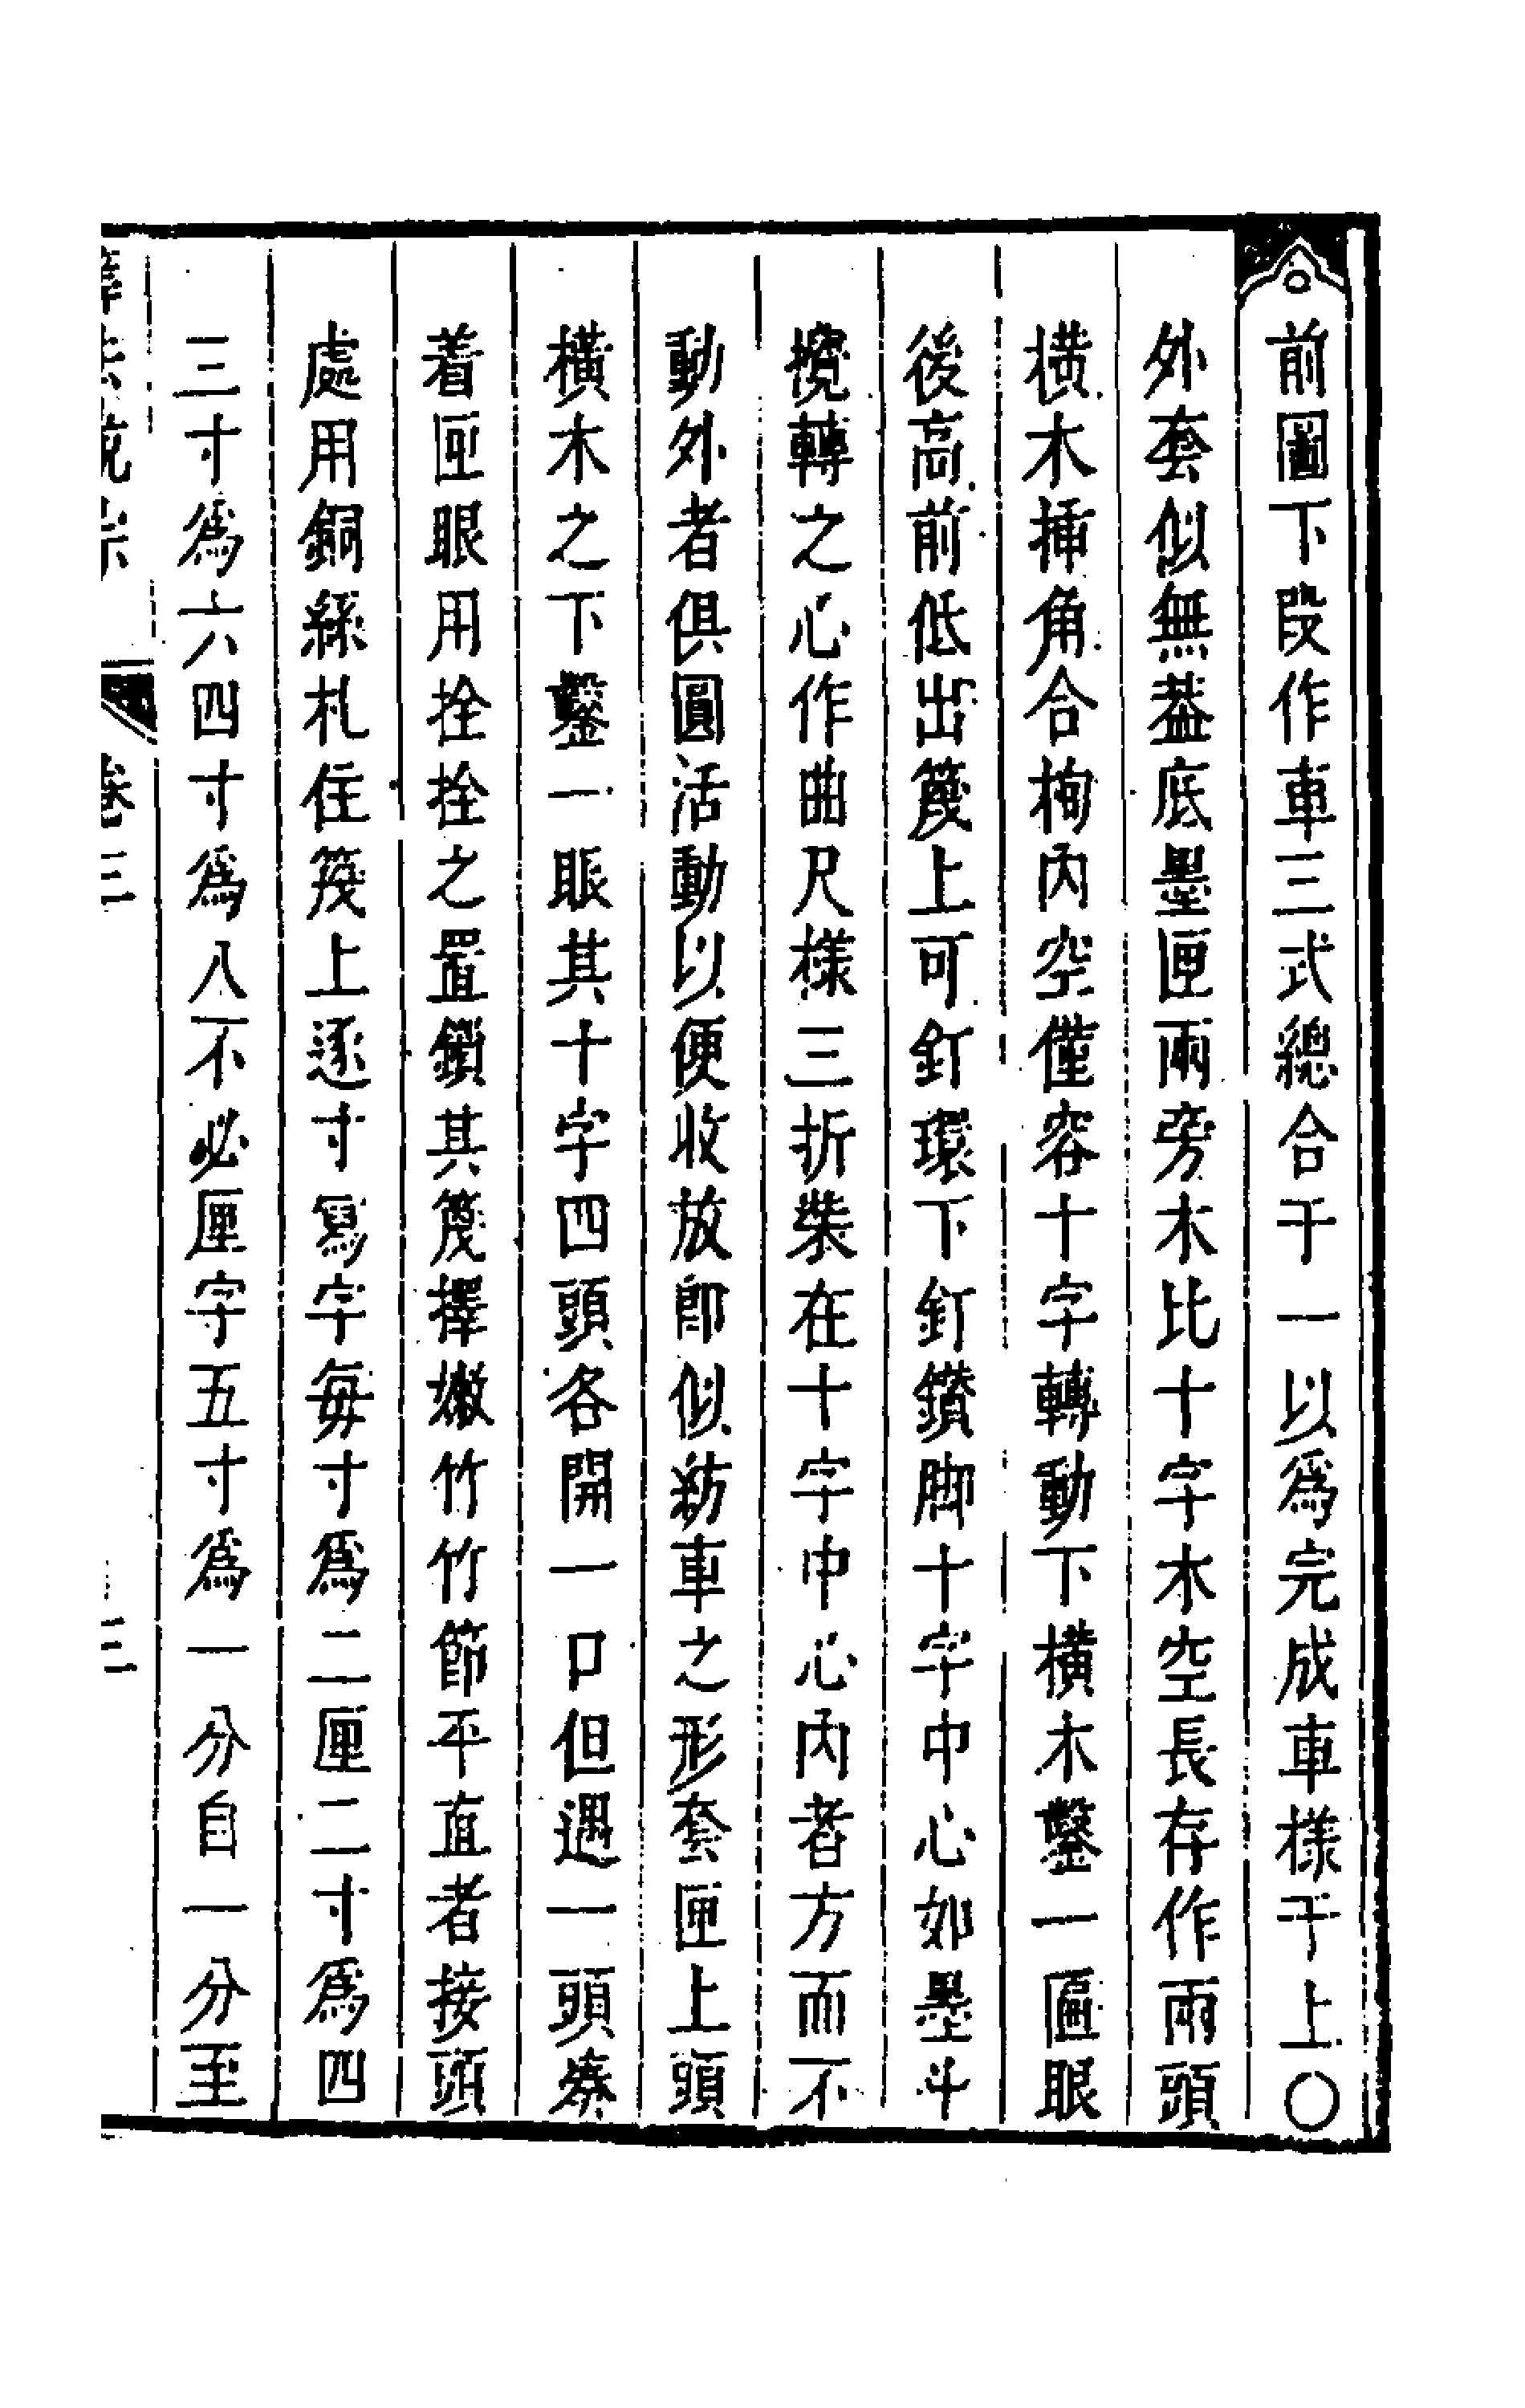 前圖下段作車三式總合于一以爲完成車樣于上〇
外套似無葢底墨匣兩旁木比十字木空長存作兩頭
橫木揷角合枸內空僅容十字轉動下橫木鑿一匾眼
後高前低出篾上可釘環下釘鑽脚十字中心如墨斗
攪轉之心作曲尺樣三折柴在十字中心內者方而不
動外者俱圓活動以便收放卽似紡車之形套匣上頭
橫木之下鑿一眼其十字四頭各開一口但遇一頭湊
着匣眼用拴拴之置鎖其篾擇嫩竹竹節平直者接頭
處用銅絲札住篾上逐寸寫字每寸爲二厘二寸爲四
三寸爲六四寸爲八不必厘字五寸爲一分自一分至
算法統宗 卷三 三